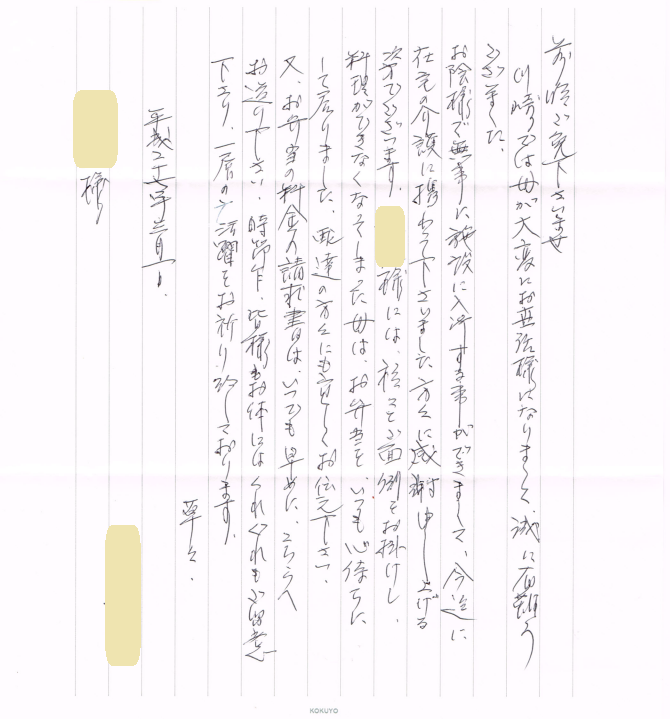 前略ご免下さいませ
川崎では母が大変にお世話様になりまして、誠に有難う
ございました。
お陰様で無事に施設に入所する事ができまして、今迄に
在宅の介護に携わって下さいました方々に感謝申し上げる
次第でございます。様には、種々とご面倒をお掛けし、
料理ができなくなってしまった母は、お弁当を、いつも心待ちに
して居りました。配達の方々にも宜しくお伝え下さい。
又、お弁当の料金の請求書は、いつでも早めに、こちらへ
お送り下さい。時節柄、皆様もお体にはくれぐれもご留意
下さり、一層のご活躍をお祈り致しております。
草々.
平成二十六年三月一日.
様
KOKUYO